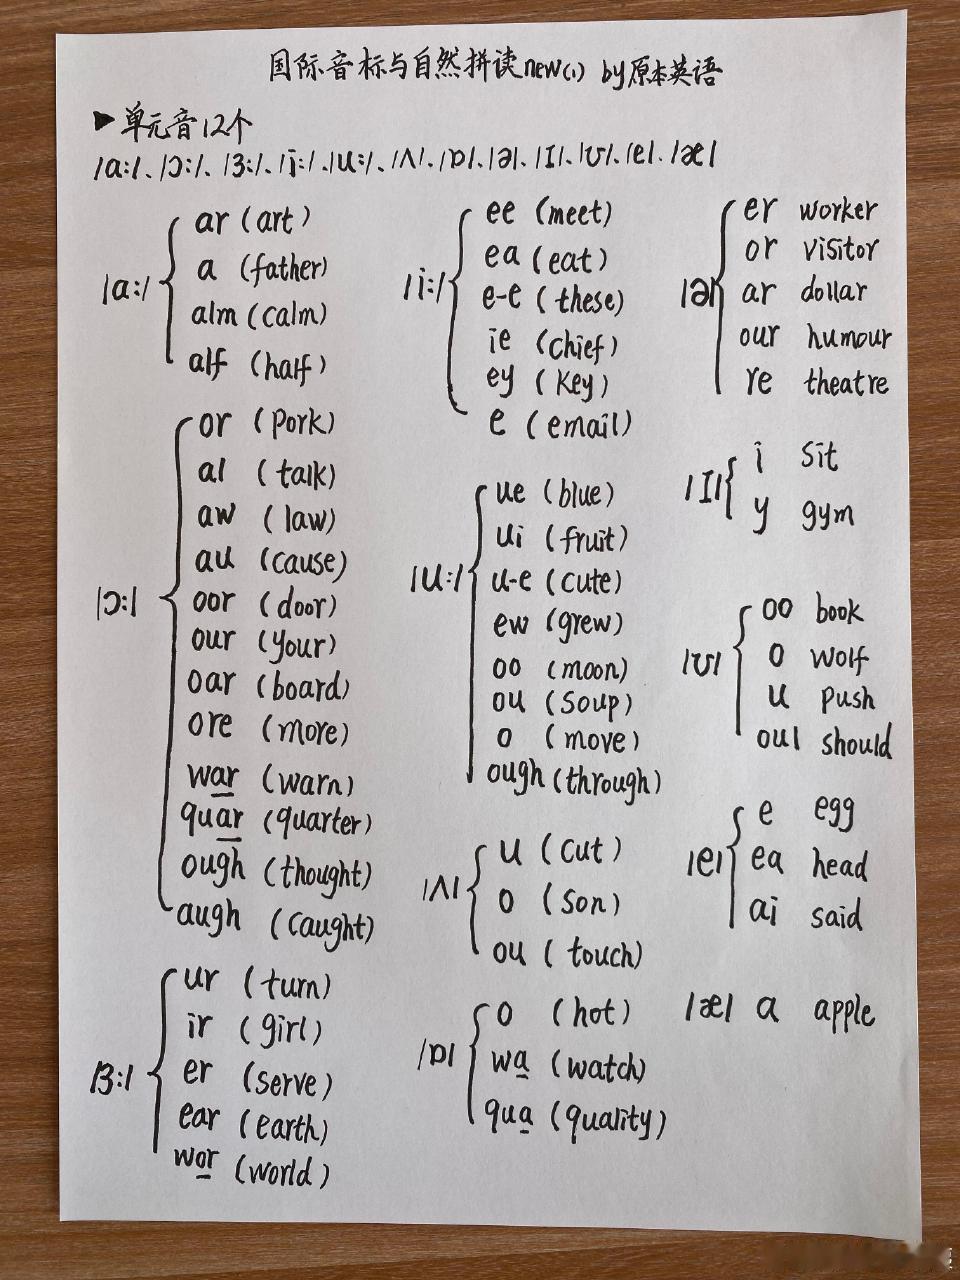 国际音标与自然拼读new(1) by原本英语
▶单元音12个
/ɑ:/、/ɔ:/、/ɜ:/、/i:/、/u:/、/ʌ/、/ɒ/、/ə/、/ɪ/、/ʊ/、/e/、/æ/
/ɑ:/
ar (art)
a (father)
alm (calm)
alf (half)
/ɔ:/
or (pork)
al (talk)
aw (law)
au (cause)
oor (door)
our (your)
oar (board)
ore (more)
war (warn)
quar (quarter)
ough (thought)
augh (caught)
/ɜ:/
ur (turn)
ir (girl)
er (serve)
ear (earth)
wor (world)
/i:/
ee (meet)
ea (eat)
e-e (these)
ie (chief)
ey (key)
e (email)
/u:/
ue (blue)
ui (fruit)
u-e (cute)
ew (grew)
oo (moon)
ou (soup)
o (move)
ough (through)
/ʌ/
u (cut)
o (son)
ou (touch)
/ɒ/
o (hot)
wa (watch)
qua (quality)
/ə/
er worker
or visitor
ar dollar
our humour
re theatre
/ɪ/
i sit
y gym
/ʊ/
oo book
o wolf
u push
oul should
/e/
e egg
ea head
ai said
/æ/ a apple